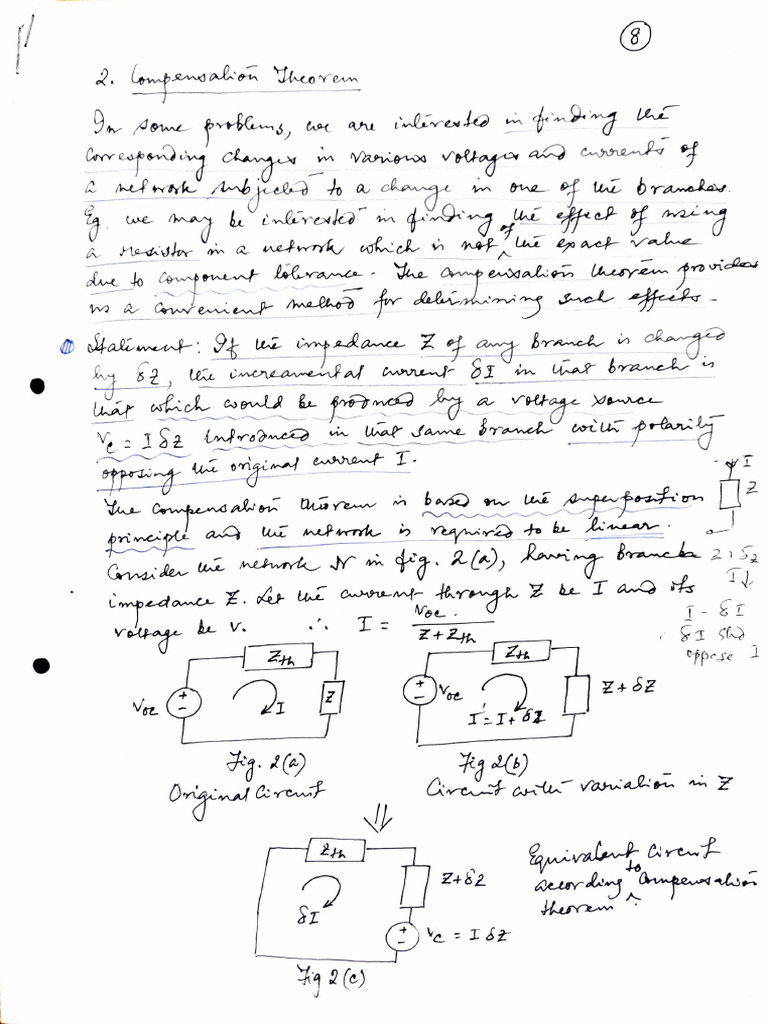 8
2. Compensation Theorem
In some problems, we are interested in finding the
corresponding changes in various voltages and currents of
a network subjected to a change in one of the branches.
Eg. we may be interested in finding the effect of using
a resistor in a network which is not of the exact value
due to component tolerance. The compensation theorem provides
us a convenient method for determining such effects.
Statement: If the impedance Z of any branch is changed
by δZ, the increamental current δI in that branch is
that which would be produced by a voltage source
Vc = I δZ introduced in that same branch with polarity
opposing the original current I.
I
Z
The compensation theorem is based on the superposition
principle and the network is required to be linear.
Consider the network N in fig. 2(a), having Branch
impedance Z. Let the current through Z be I and its
voltage be v. ∴ I = Voc / Z + Zth
I↓
I - δI
δI shd
oppose I
Zth
Voc
I
Z
Zth
Voc
I' = I + δI
Z + δZ
Fig. 2(a)
Fig 2(b)
Original Circuit
Circuit with variation in Z
⇓
Zth
Z + δZ
δI
Vc = I δZ
Equivalent Circuit
according to Compensation
theorem
Fig 2(c)